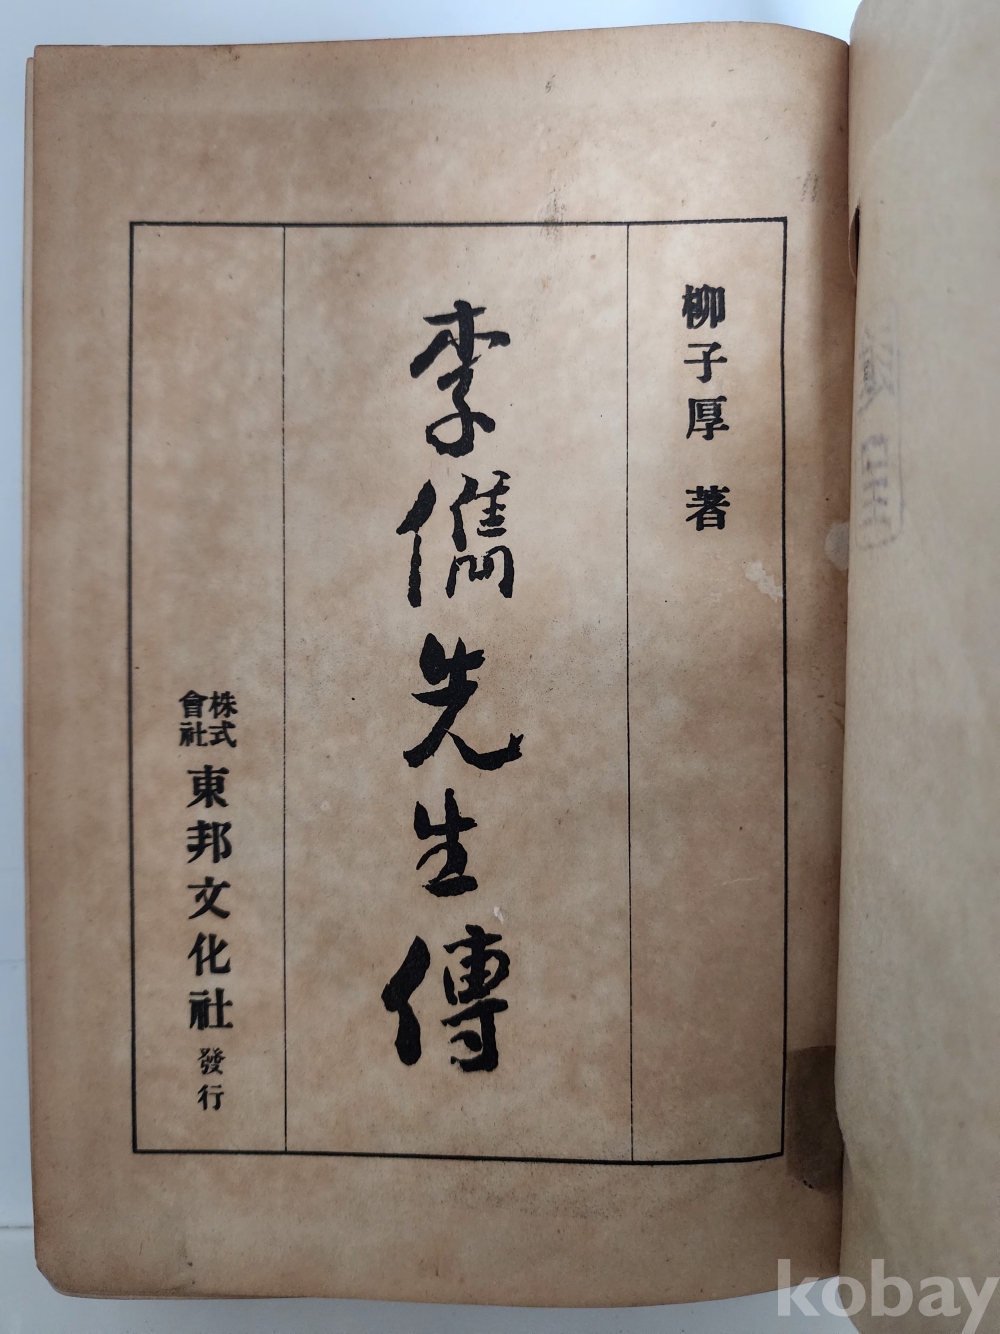 柳子厚 著
李儁先生傳
株式會社 東邦文化社 發行
kobay